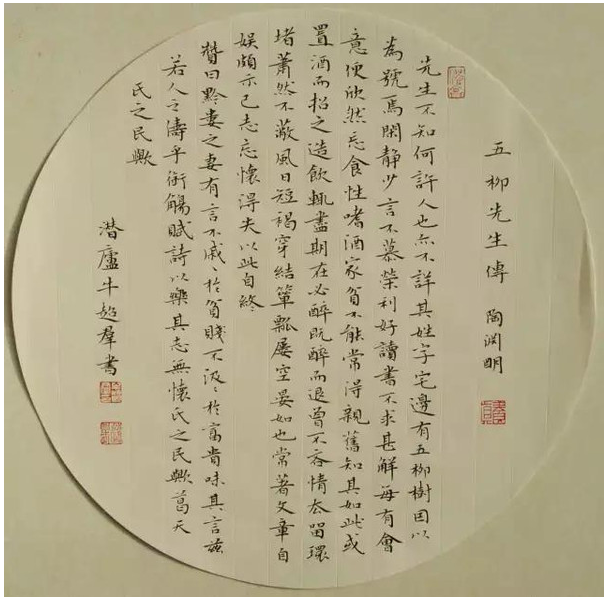 五柳先生傳 陶渊明
先生不知何許人也亦不詳其姓字宅邊有五柳樹因以
為號焉閑静少言不慕榮利好讀書不求甚解每有會
意便欣然忘食性嗜酒家貧不能常得親舊知其如此或
置酒而招之造飲輒盡期在必醉既醉而退曾不吝情去留環
堵蕭然不蔽風日短褐穿結簞瓢屢空晏如也常著文章自
娱頗示己志忘懷得失以此自終
贊曰黔婁之妻有言不戚〻於貧賤不汲〻於富貴味其言兹
若人之儔乎銜觴賦詩以樂其志無懷氏之民歟葛天
氏之民歟
潜廬牛超群書